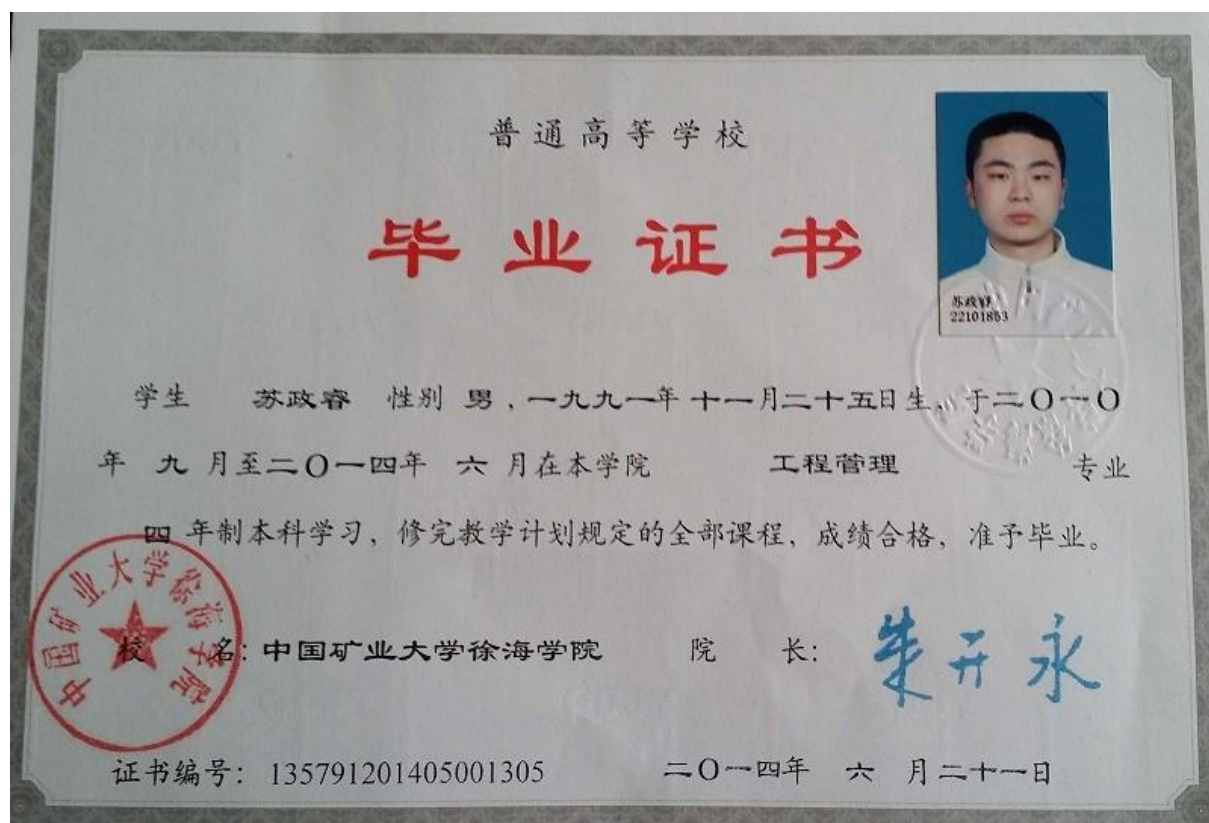 普通高等学校
毕业证书
苏政睿
22101853
学生 苏政睿 性别 男，一九九一年十一月二十五日生，于二〇一〇
年 九 月至二〇一四年 六 月在本学院 工程管理 专业
四 年制本科学习，修完教学计划规定的全部课程，成绩合格，准予毕业。
中国矿业大学徐海学院
校 名：中国矿业大学徐海学院 院 长：朱开永
证书编号：135791201405001305 二〇一四年 六 月二十一日